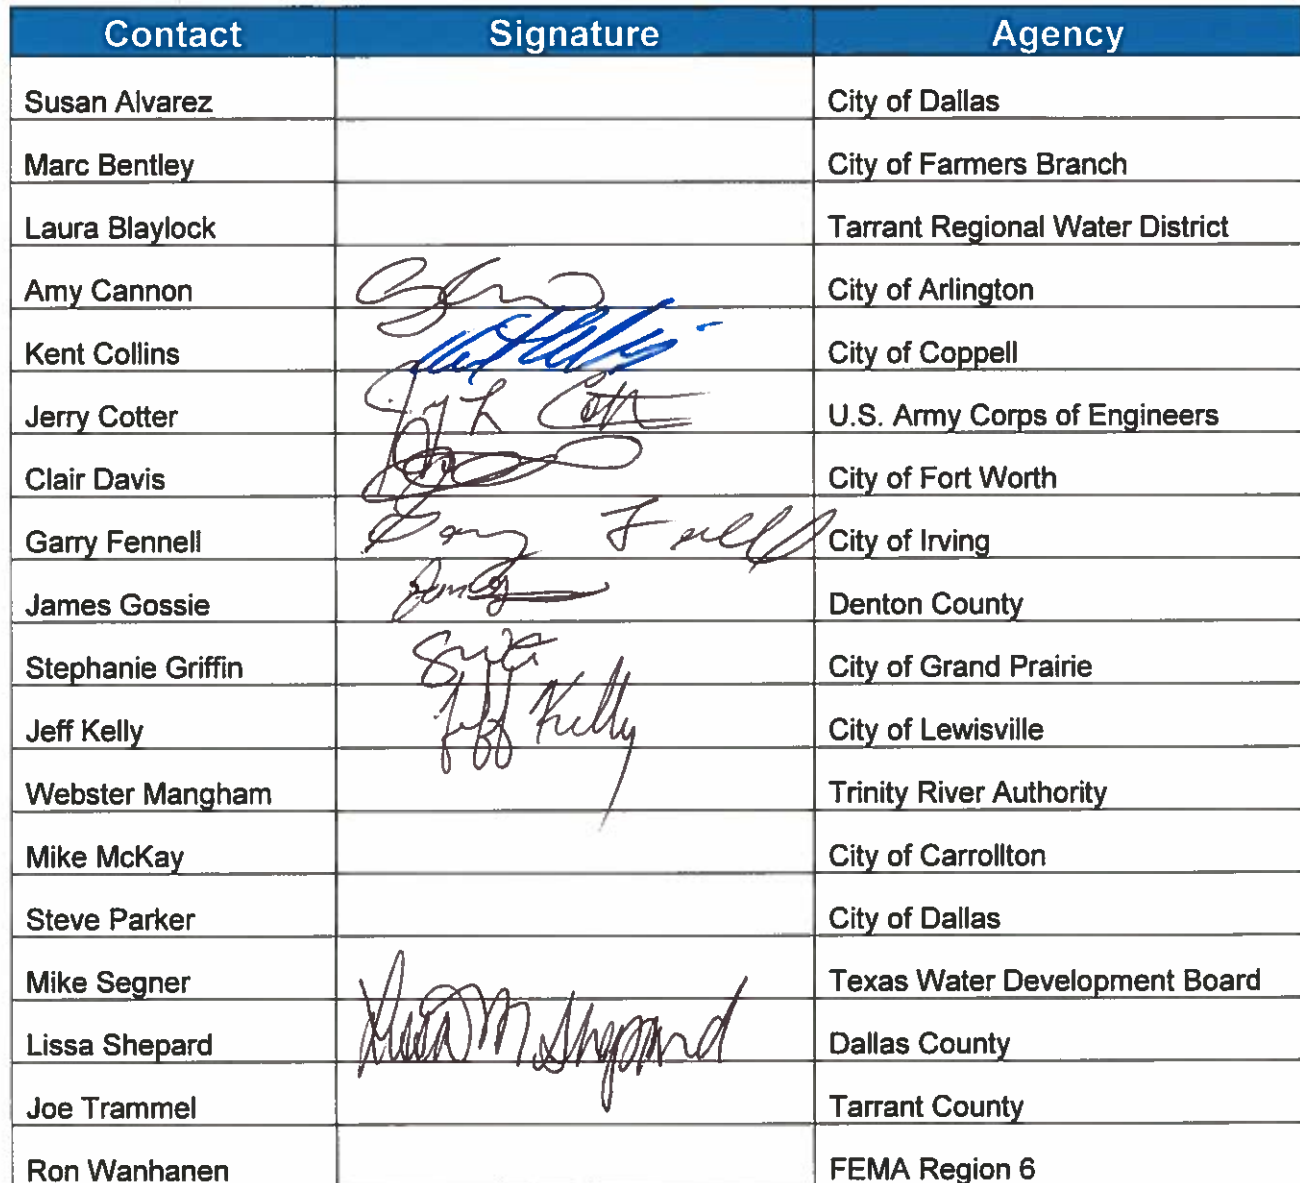 Contact Signature Agency
Susan Alvarez City of Dallas
Marc Bentley City of Farmers Branch
Laura Blaylock Tarrant Regional Water District
Amy Cannon City of Arlington
Kent Collins City of Coppell
Jerry Cotter City of U.S. Army Corps of Engineers
Clair Davis City of Fort Worth
Garry Fennell Garry Fennell City of Irving
James Gossie Denton County
Stephanie Griffin City of Grand Prairie
Jeff Kelly Jeff Kelly City of Lewisville
Webster Mangham Trinity River Authority
Mike McKay City of Carrollton
Steve Parker City of Dallas
Mike Segner Texas Water Development Board
Lissa Shepard Lissa M Shepard Dallas County
Joe Trammel Tarrant County
Ron Wanhanen FEMA Region 6